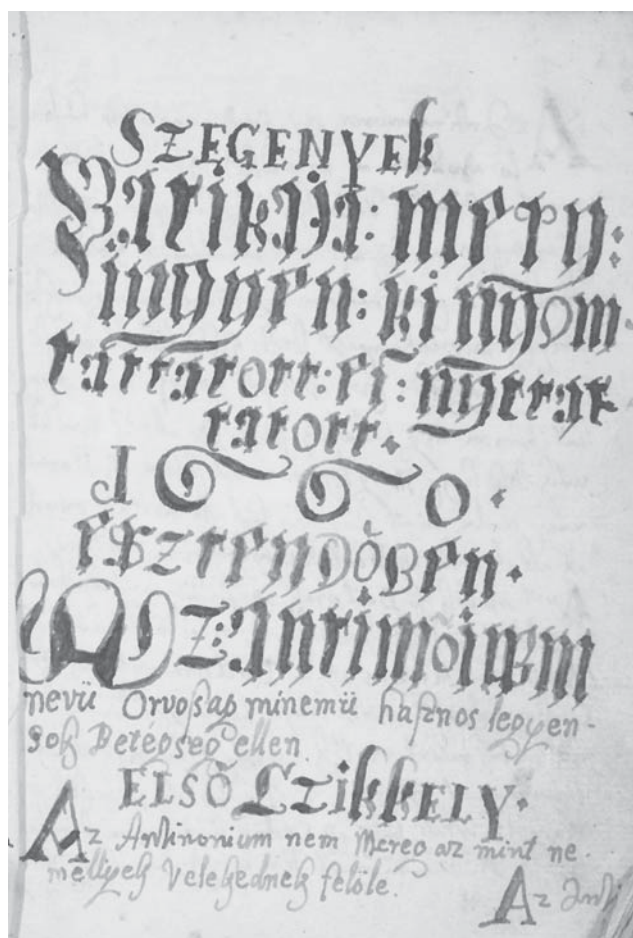 SZEGENYEk
Patikája: mely:
ingyen: ki nyom
tattatott: es: nyittat
tatott.
1660.
esztendöben.
Az: Antimoium
nevü Orvoßag minemü hasznos legyen-
sok Betegseg ellen
ELSÖ Czikkely.
Az Antinonium nem Mereg az mint ne-
mellyek Velekednek felöle.
Az Anti